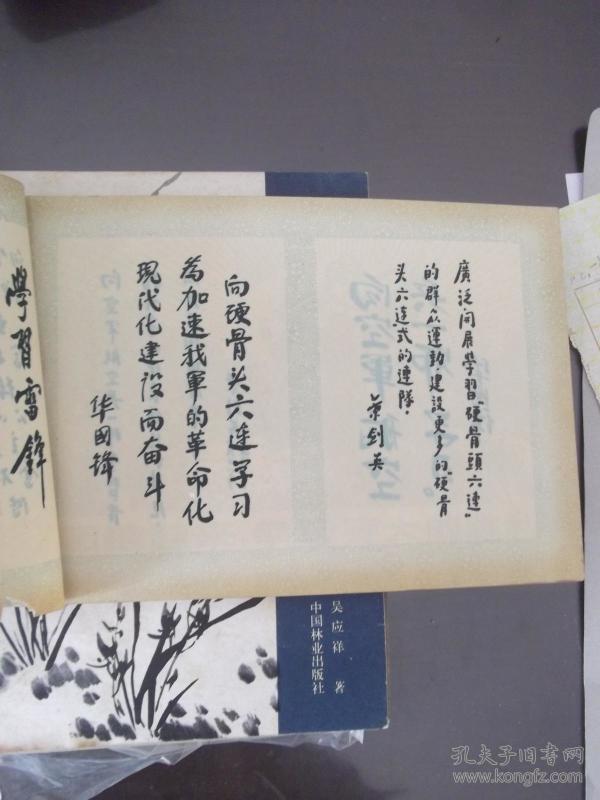 廣泛開展學習“硬骨頭六連”
的群众運動，建設更多的“硬骨
头六连式的連隊。
叶剑英
向硬骨头六连学习
為加速我軍的革命化
現代化建设而奋斗
华国锋
學習雷鋒
吴应祥 著
中国林业出版社
孔夫子旧书网
www.kongfz.com